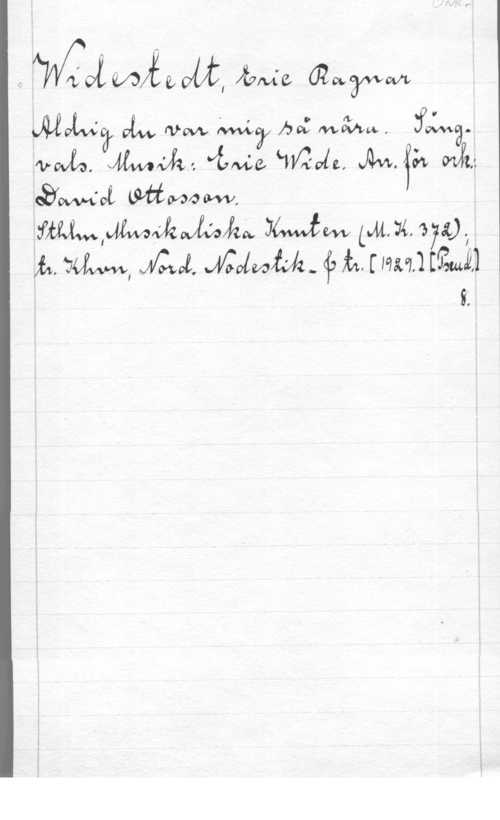 Widestedt, Eric Ragnar
Aldrig du var mig så nära. Sång-
vals. Musik: Eric Wide. Arr. för ork:
David Ottosson.
Sthlm, Musikaliska Knuten (M.K. 372);
tr. Khvn, Nord. Nodestik- & tr. [1929.] [Pseud.]
8.